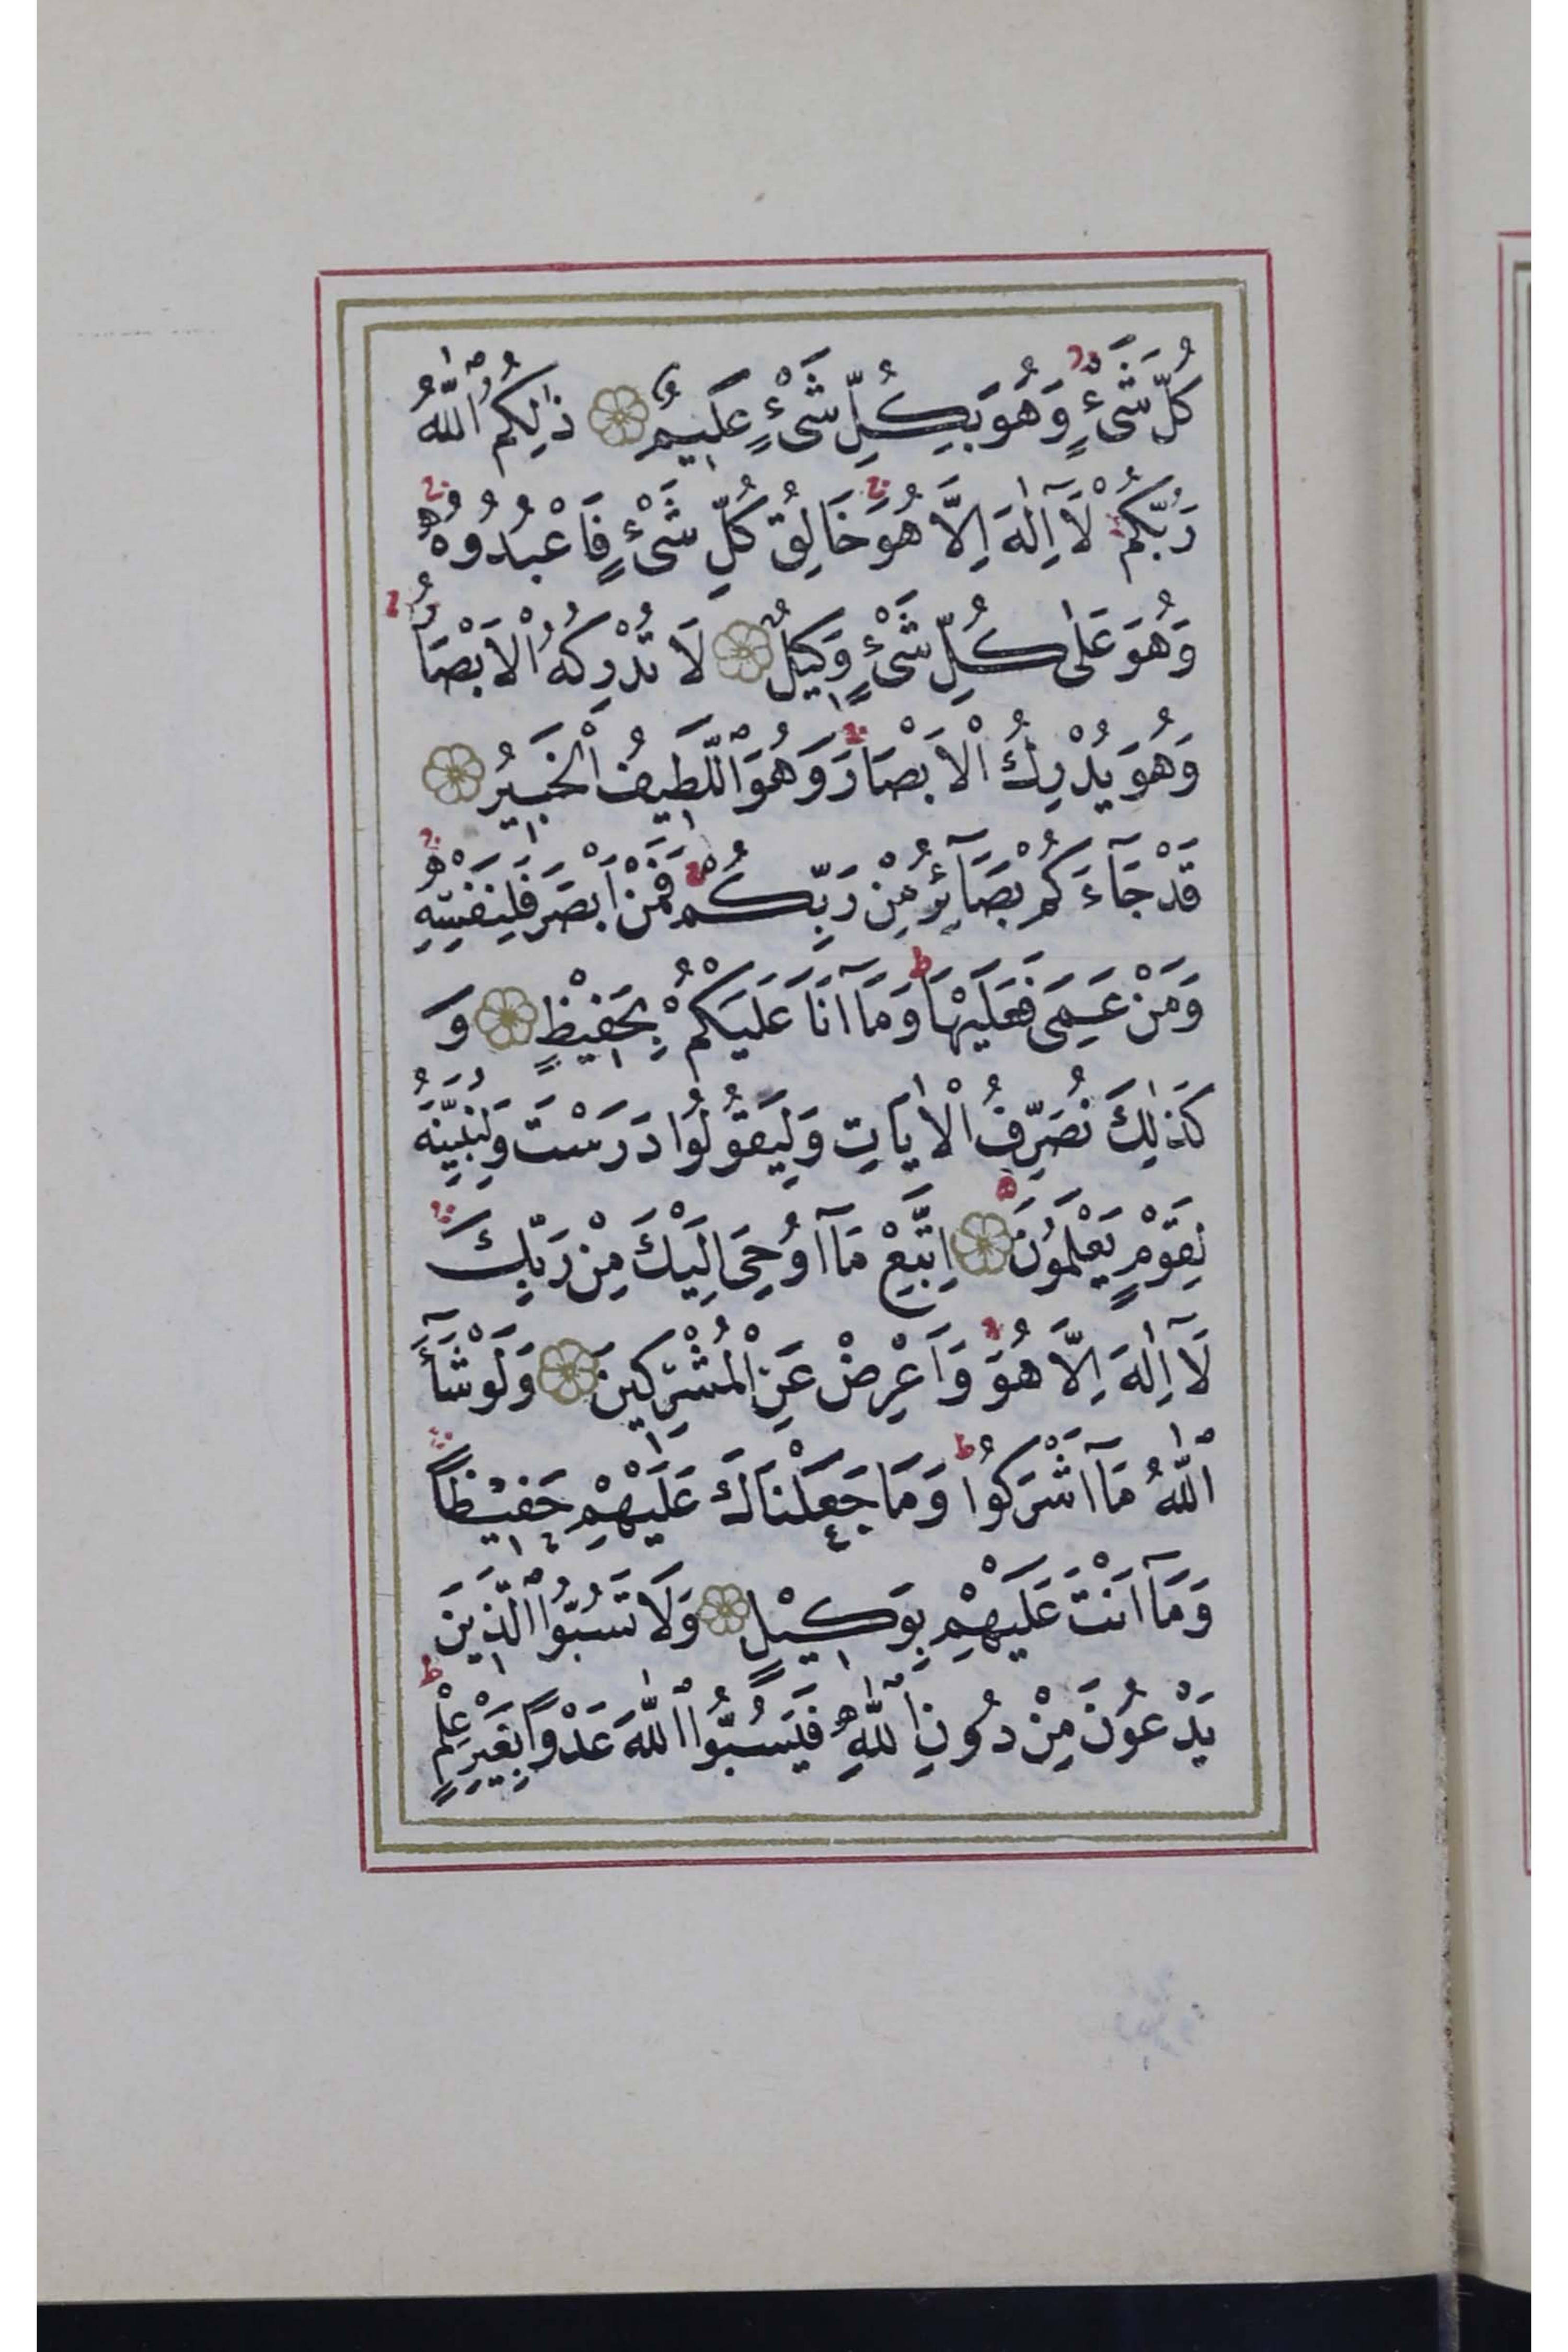 كُلَّ شَىْءٍ وَهُوَ بِكُلِّ شَىْءٍ عَلِيمٌ ذٰلِكُمُ ٱللّٰهُ
رَبُّكُمْ لَآ اِلٰهَ اِلَّا هُوَ خَالِقُ كُلِّ شَىْءٍ فَاعْبُدُوهُ
وَهُوَ عَلٰى كُلِّ شَىْءٍ وَكِيلٌ لَا تُدْرِكُهُ الْاَبْصَارُ
وَهُوَ يُدْرِكُ الْاَبْصَارَ وَهُوَ ٱللَّطِيفُ الْخَبِيرُ
قَدْ جَآءَكُمْ بَصَآئِرُ مِنْ رَبِّكُمْ فَمَنْ اَبْصَرَ فَلِنَفْسِهِ
وَمَنْ عَمِىَ فَعَلَيْهَا وَمَآ اَنَا عَلَيْكُمْ بِحَفِيْظٍ وَ
كَذٰلِكَ نُصَرِّفُ الْاٰيَاتِ وَلِيَقُولُوا دَرَسْتَ وَلِنُبَيِّنَهُ
لِقَوْمٍ يَعْلَمُونَ اِتَّبِعْ مَآ اُوحِىَ اِلَيْكَ مِنْ رَبِّكَ
لَآ اِلٰهَ اِلَّا هُوَ وَاَعْرِضْ عَنِ الْمُشْرِكِينَ وَلَوْ شَآءَ
ٱللّٰهُ مَآ اَشْرَكُوا وَمَا جَعَلْنَاكَ عَلَيْهِمْ حَفِيْظًا
وَمَآ اَنْتَ عَلَيْهِمْ بِوَكِيْلٍ وَلَا تَسُبُّوا ٱلَّذِينَ
يَدْعُونَ مِنْ دُونِ ٱللّٰهِ فَيَسُبُّوا ٱللّٰهَ عَدْوًا بِغَيْرِ عِلْمٍ